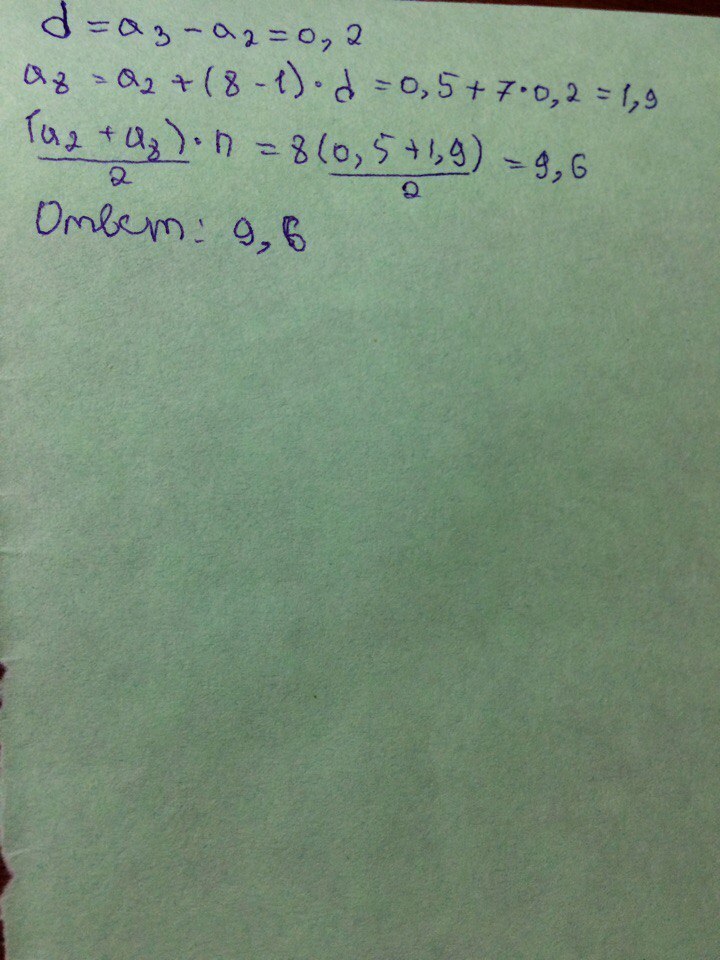 d = a₃ - a₂ = 0,2
a₈ = a₂ + (8 - 1) · d = 0,5 + 7 · 0,2 = 1,9
(a₂ + a₈)/2 · n = 8(0,5 + 1,9)/2 = 9,6
Ответ: 9,6